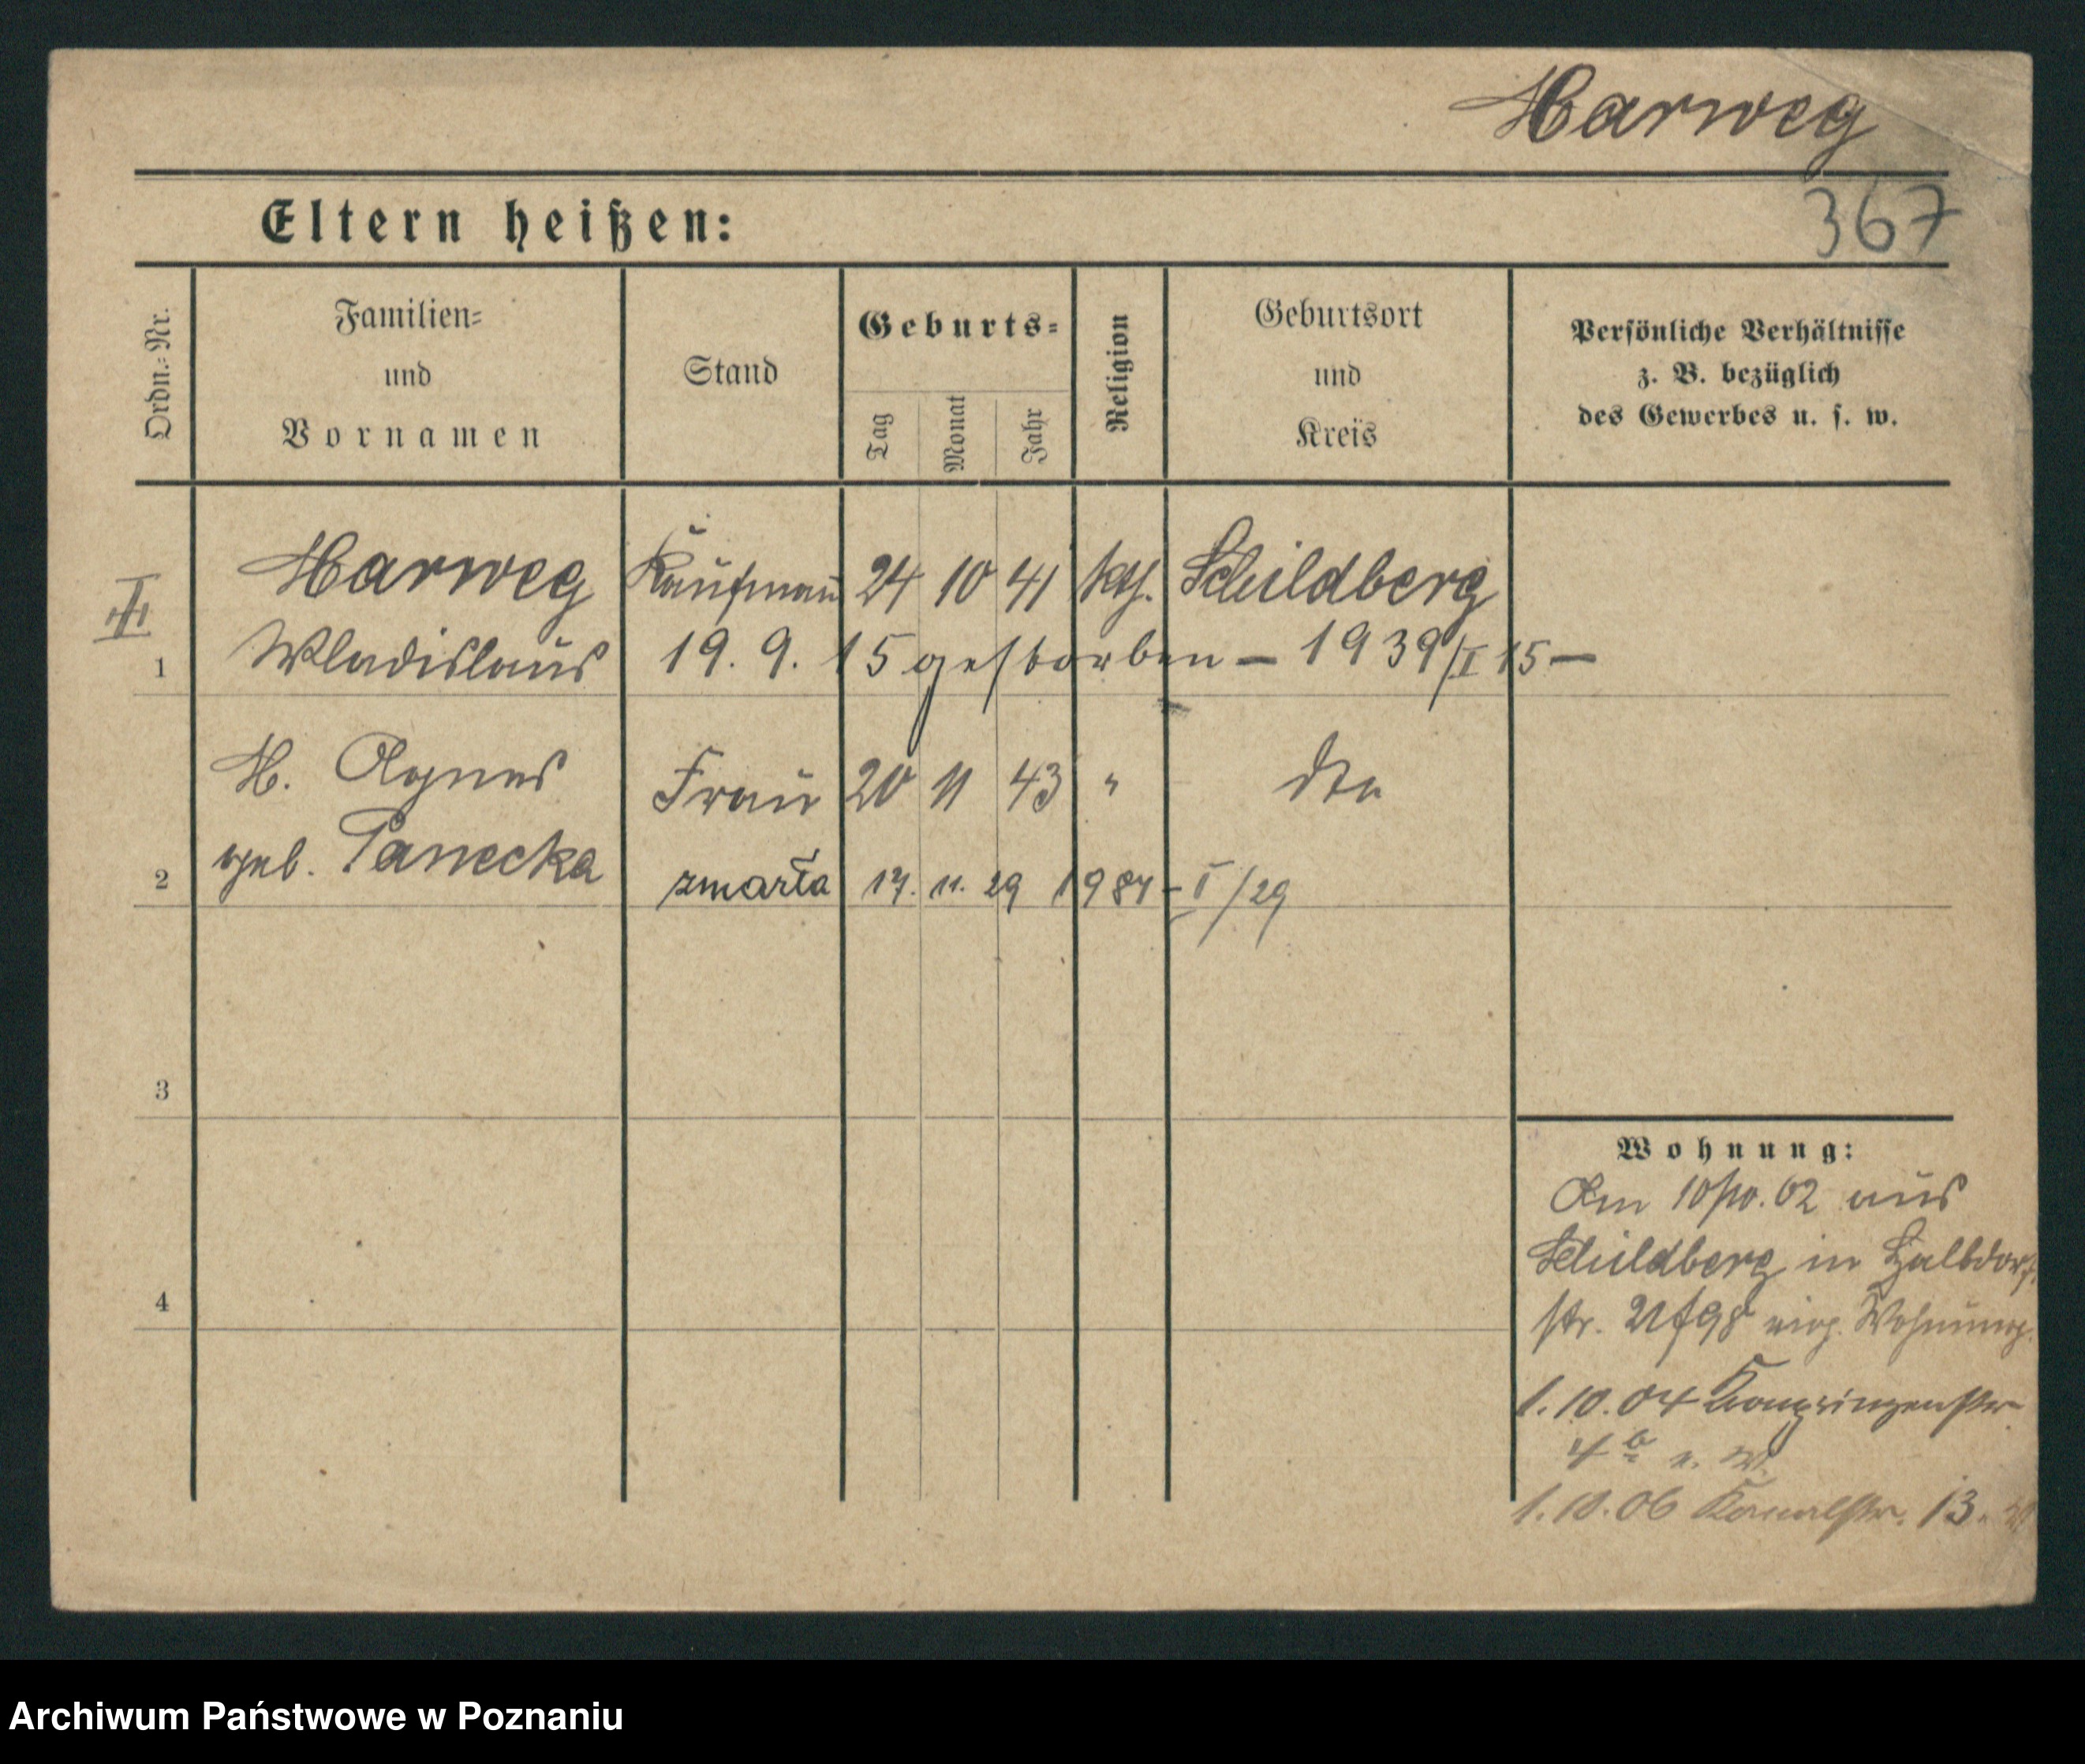 Harweg
367
Eltern heißen:
Ordn.-Nr.
Familien-
und
Vornamen
Stand
Geburts-
Tag
Monat
Jahr
Religion
Geburtsort
und
Kreis
Persönliche Verhältnisse
z. B. bezüglich
des Gewerbes u. s. w.
II
Harweg Kaufmann 24 10 41 kth. Schildberg
1 Wladislaus 19. 9. 15 gestorben – 1939/I 15 –
H. Agnes Frau 20 11 43 " dto
2 geb. Panecka zmarła 17. 11. 29 1984 – I/29
3
4
Wohnung:
Am 10/10. 02 aus
Schildberg in Halbdorf
str. 21 eig. Wohnung.
1. 10. 04 Kronprinzenstr
4 b e. W.
1. 10. 06 Kanalstr. 13.
Archiwum Państwowe w Poznaniu